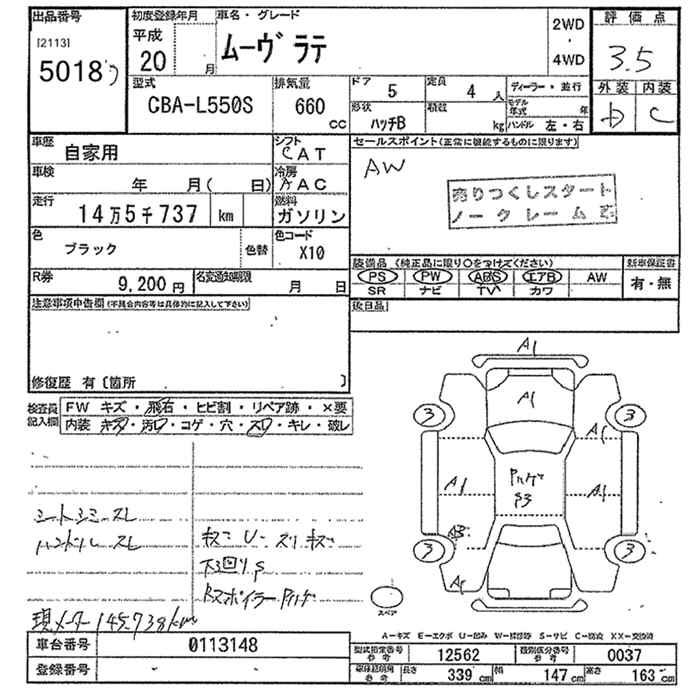 出品番号 初度登録年月 車名・グレード 評価点
[2113] 平成 ムーヴ ラテ 2WD
5018 20 月 ・ 3.5
4WD
型式 排気量 ドア 5 定員 4人 ディーラー・並行 外装 内装
CBA-L550S 660 モデル年式 年 D C
CC 形状 ハッチB 積数 kg ハンドル 左・右
車歴 自家用 シフト CAT セールスポイント(正常に機能するものに限ります)
車検 年 月( 日) 冷房 AAC AW
走行 14万5千737 km 燃料 ガソリン 売りつくしスタート
ノークレーム
色 ブラック 色替 色コード X10
装備品 (純正品に限り○をつけてください) 新車保証書
R券 9,200円 名変通知期限 月 日 PS PW ABS エアB AW 有・無
SR ナビ TV カワ
注意事項申告欄(不具合内容等は具体的に記入して下さい) 後日品
修復歴 有〔箇所 〕
検査員記入欄 FW キズ・飛石・ヒビ割・リペア跡・×要
内装 キズ・汚れ・コゲ・穴・スレ・キレ・破レ
A1
A1
3 3
A1
A1 A1
3 3
A1
シートシミ スレ
ハンドル スレ キズ U・スリキズ
下回りS
Rスポイラー
現メーター 145,738km
スペア
A-キズ E-エクボ U-凹み W-補修跡 S-サビ C-腐食 XX-交換済
車台番号 0113148 型式指定番号 参考 12562 類別区分番号 参考 0037
登録番号 長さ 339cm 幅 147cm 高さ 163cm